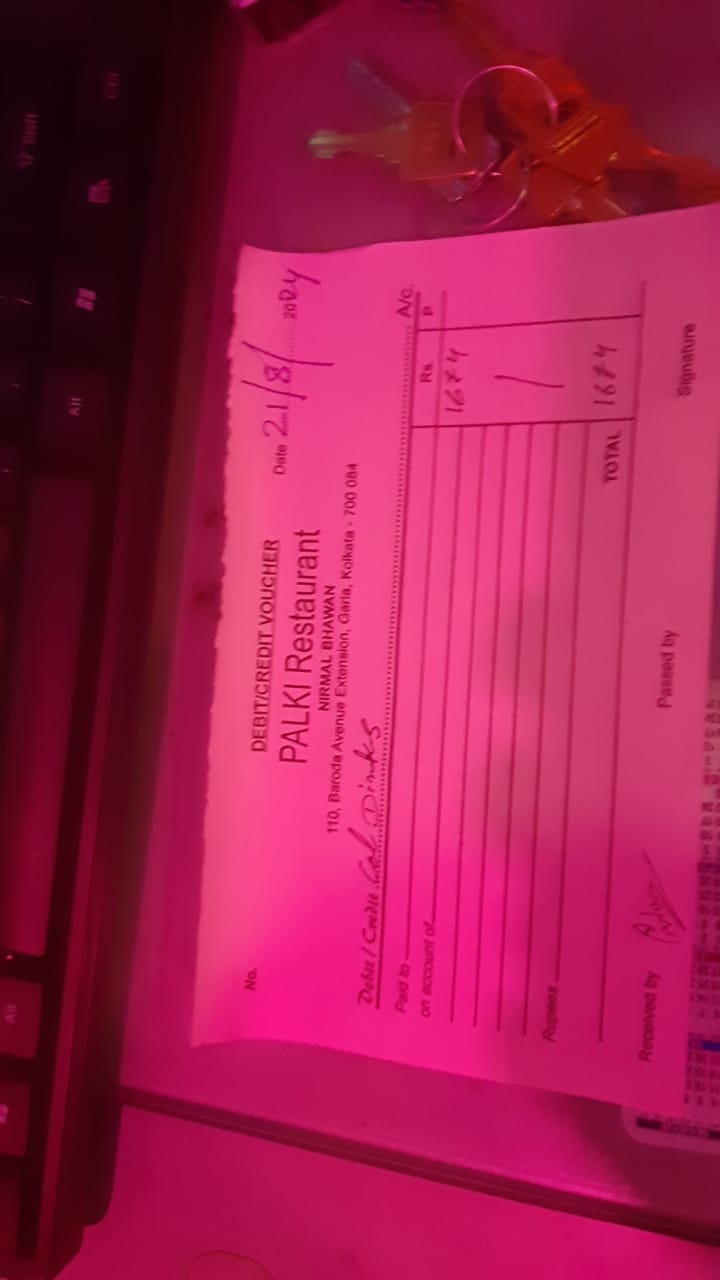 DEBIT/CREDIT VOUCHER
No.
Date 21/8/2024
PALKI Restaurant
NIRMAL BHAWAN
110, Baroda Avenue Extension, Garia, Kolkata - 700 084
Debit / Credit Col Dinks
A/c.
Paid to
on account of
Rs. P.
1674
Rupees
TOTAL 1674
Received by
Passed by
Signature
Alt
Alt
Ctrl